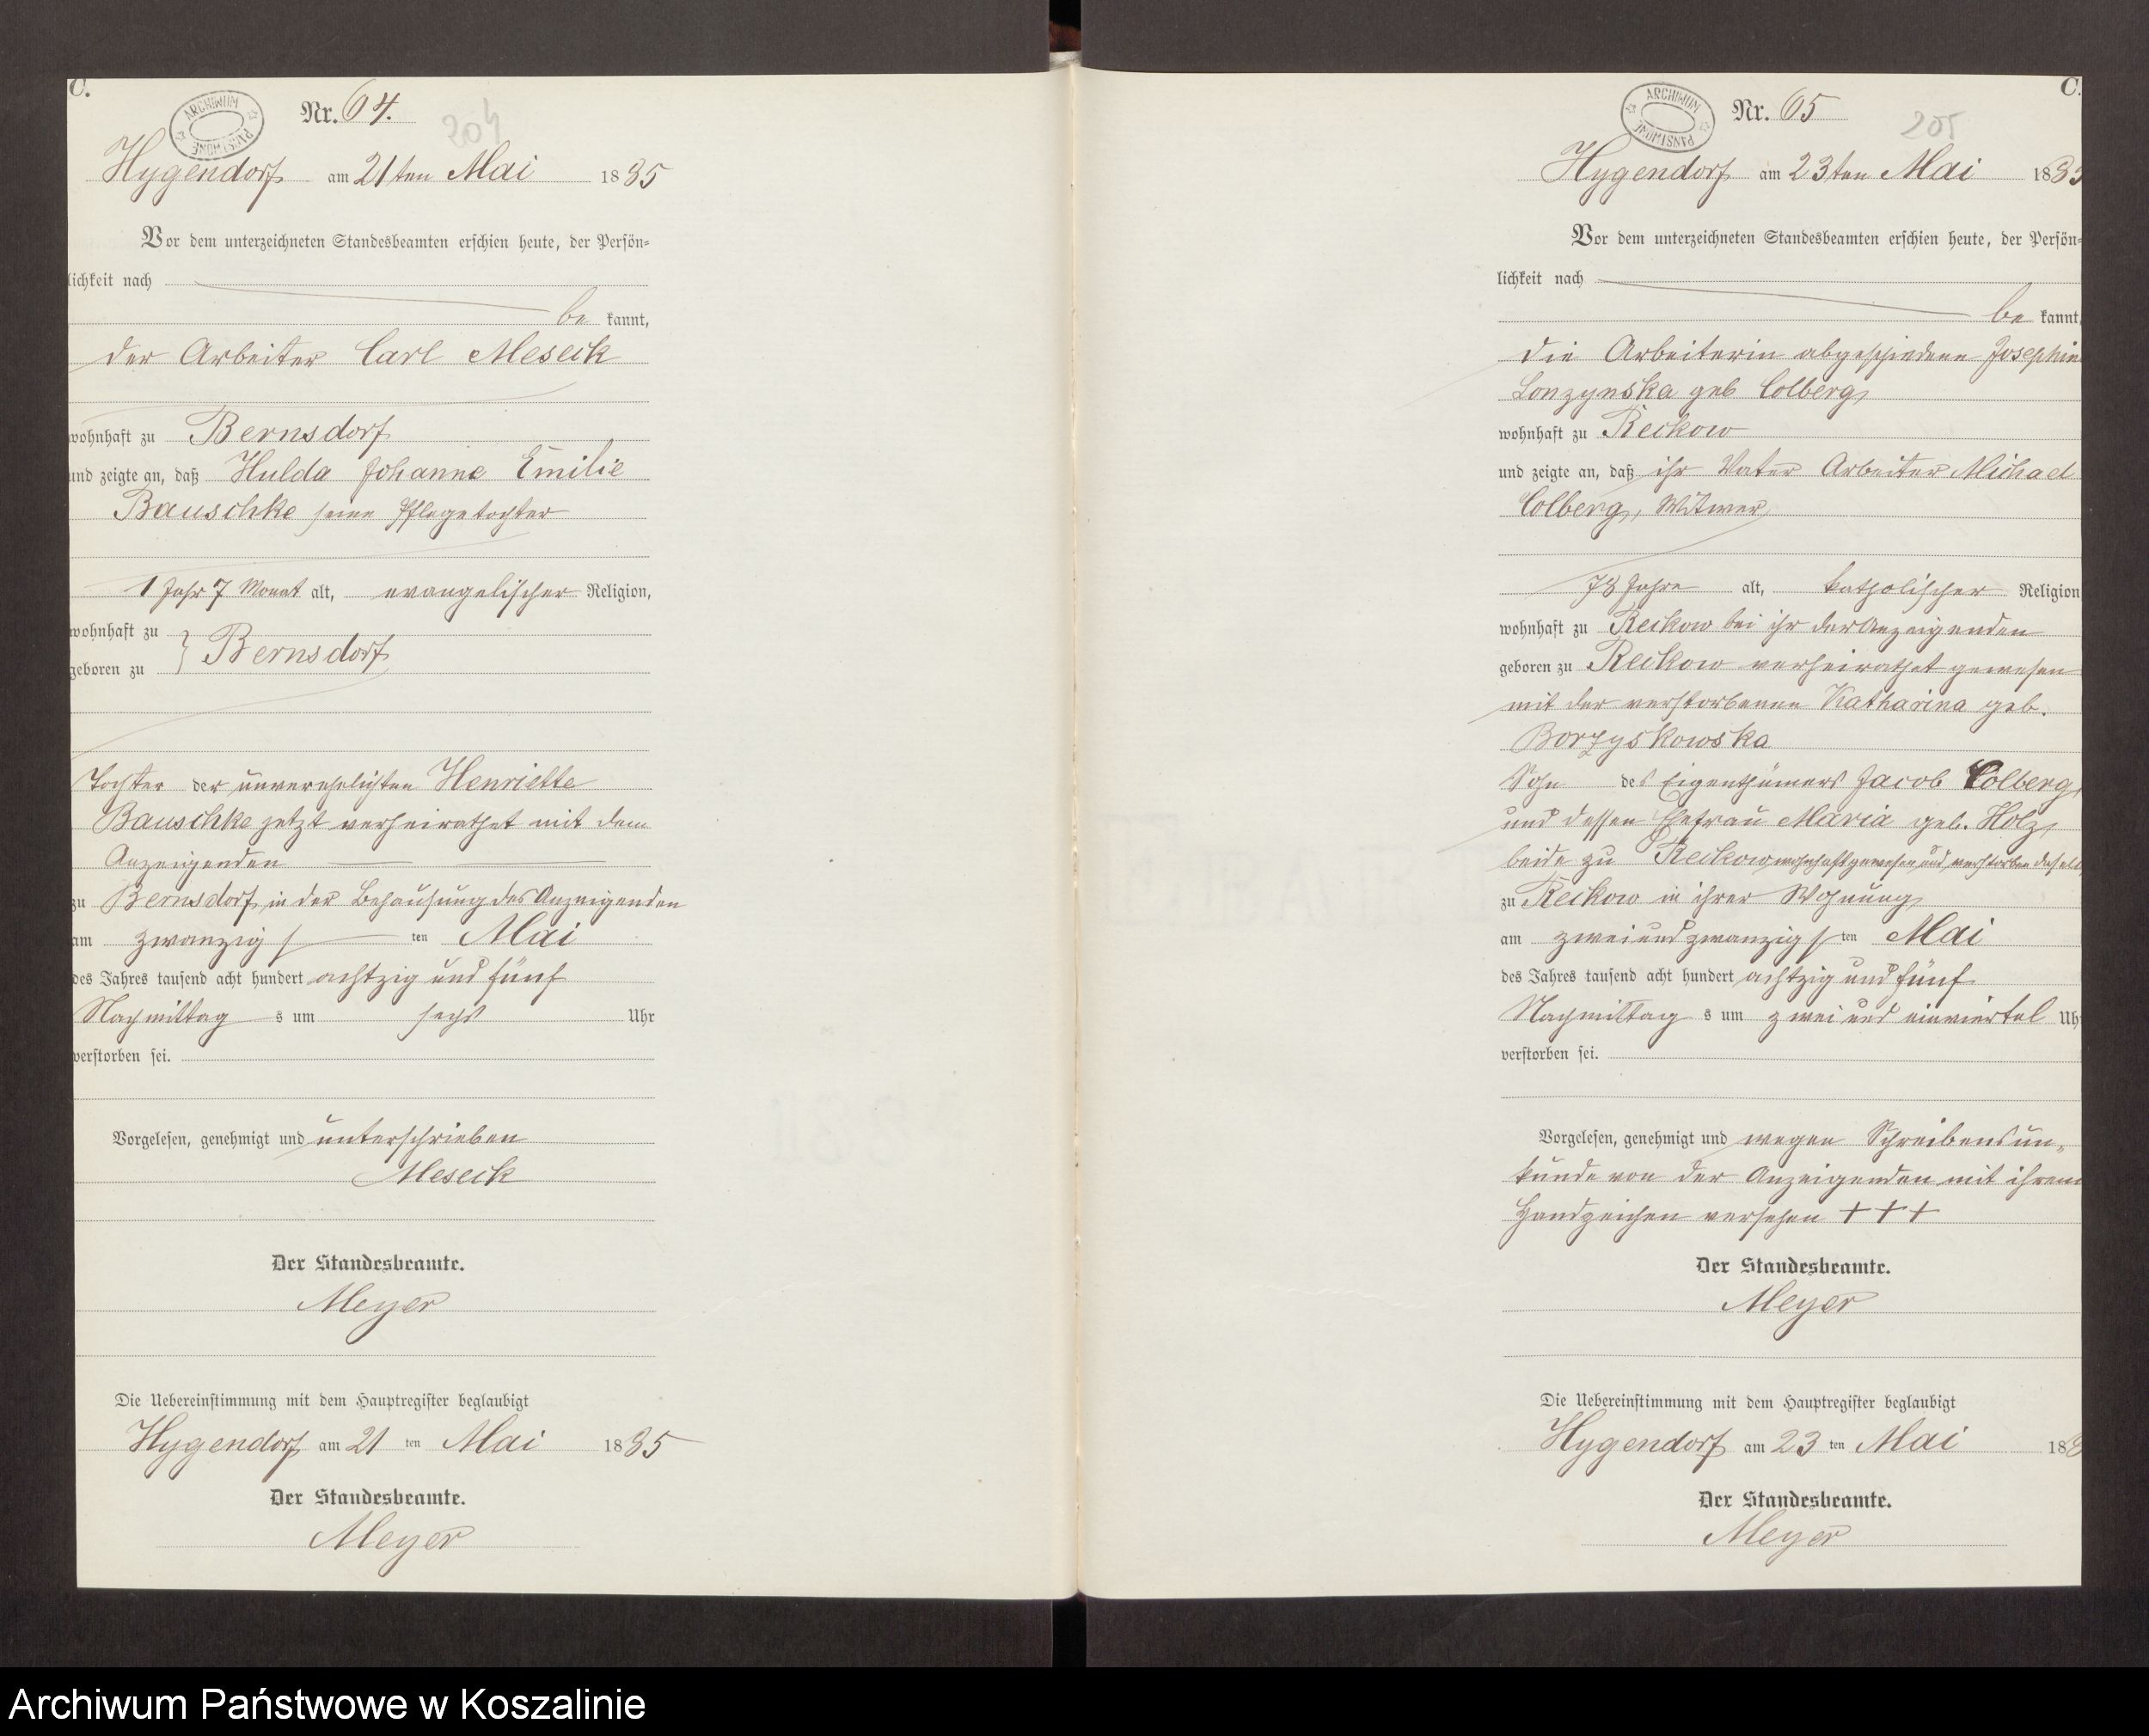 C.
ARCHIWUM PAŃSTWOWE
Nr. 64.
204
Hygendorf am 21ten Mai 1885
Vor dem unterzeichneten Standesbeamten erschien heute, der Persön=
lichkeit nach
be kannt,
der Arbeiter Carl Meseck
wohnhaft zu Bernsdorf
und zeigte an, daß Hulda Johanne Emilie
Bauschke seine Pflegetochter
1 Jahr 7 Monat alt, evangelischer Religion,
wohnhaft zu
Bernsdorf
geboren zu
Tochter der unverehelichten Henriette
Bauschke jetzt verheirathet mit dem
Anzeigenden
zu Bernsdorf in der Behausung des Anzeigenden
am zwanzigs ten Mai
des Jahres tausend acht hundert achtzig und fünf
Nachmittag s um sechs Uhr
verstorben sei.
Vorgelesen, genehmigt und unterschrieben
Meseck
Der Standesbeamte.
Meyer
Die Uebereinstimmung mit dem Hauptregister beglaubigt
Hygendorf am 21 ten Mai 1885
Der Standesbeamte.
Meyer
C.
ARCHIWUM PAŃSTWOWE
Nr. 65
205
Hygendorf am 23ten Mai 1885
Vor dem unterzeichneten Standesbeamten erschien heute, der Persön=
lichkeit nach
be kannt,
die Arbeiterin abgeschiedene Josephin
Lonzynska geb Colberg,
wohnhaft zu Reckow
und zeigte an, daß ihr Vater Arbeiter Michael
Colberg, Witwer,
78 Jahre alt, katholischer Religion
wohnhaft zu Reckow bei ihr der Anzeigenden
geboren zu Reckow verheirathet gewesen
mit der verstorbenen Katharina geb.
Borzyskowska
Sohn des Eigenthümers Jacob Colberg,
und dessen Ehefrau Maria geb. Holz,
beide zu Reckow wohnhaft gewesen und verstorben dasel
zu Reckow in ihrer Wohnung,
am zweiundzwanzigs ten Mai
des Jahres tausend acht hundert achtzig und fünf
Nachmittag s um zwei und einviertel Uh
verstorben sei.
Vorgelesen, genehmigt und wegen Schreibensun-
kunde von der Anzeigenden mit ihrem
Handzeichen versehen +++
Der Standesbeamte.
Meyer
Die Uebereinstimmung mit dem Hauptregister beglaubigt
Hygendorf am 23 ten Mai 188
Der Standesbeamte.
Meyer
Archiwum Państwowe w Koszalinie